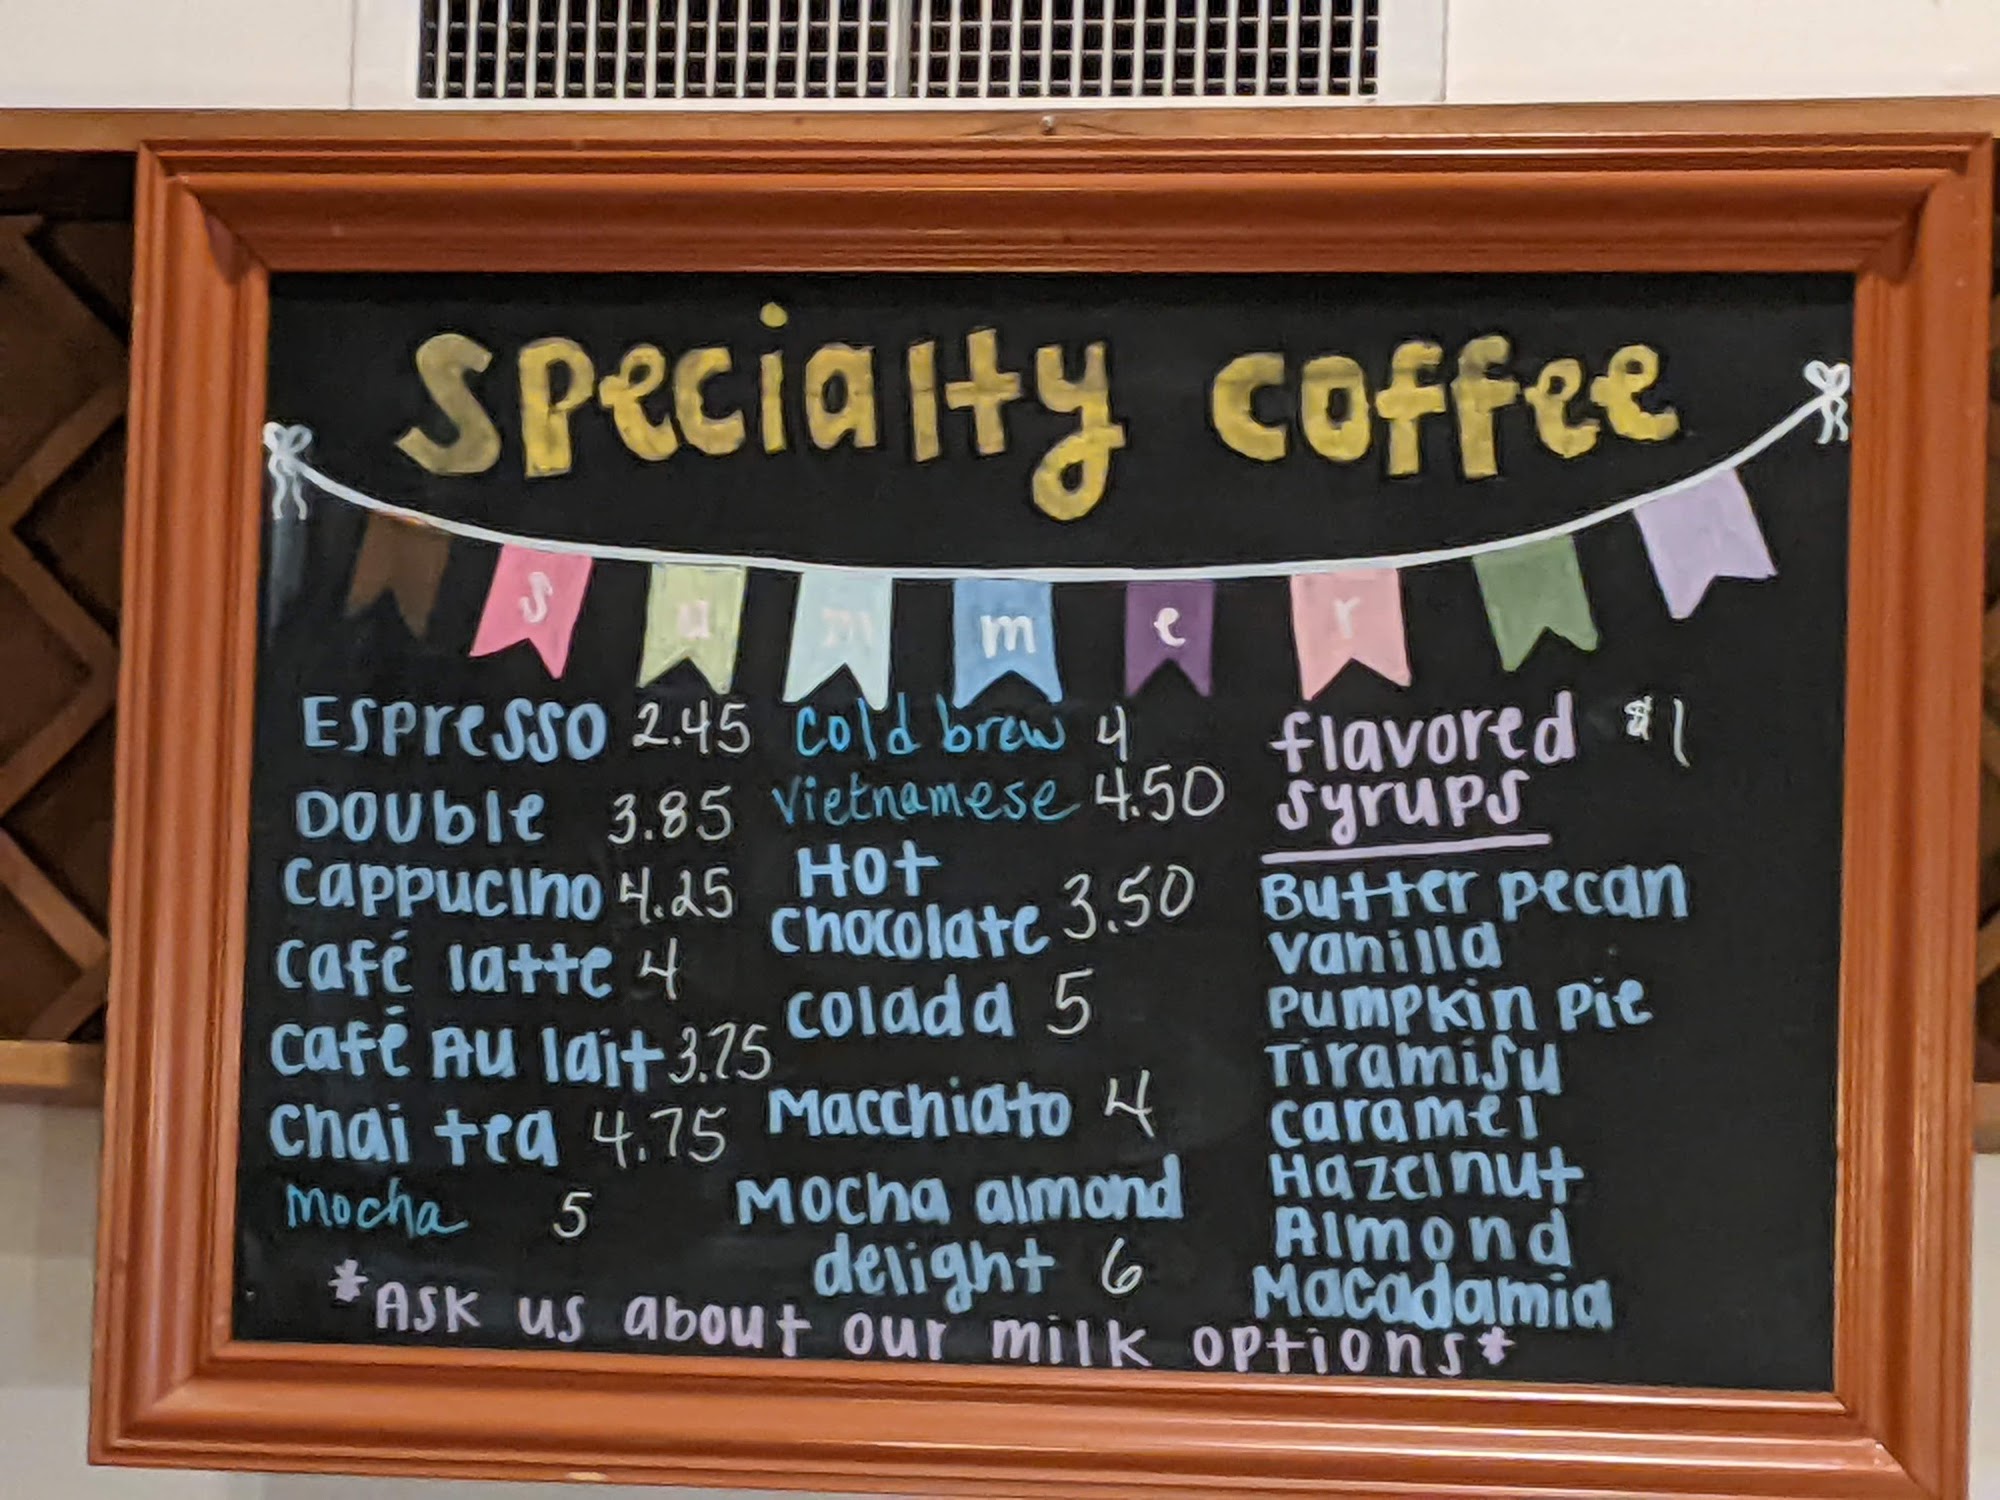 Specialty coffee
summer
Espresso 2.45
Double 3.85
Cappucino 4.25
Café latte 4
Café Au lait 3.75
Chai tea 4.75
Mocha 5
Cold brew 4
Vietnamese 4.50
Hot
chocolate 3.50
colada 5
Macchiato 4
Mocha almond
delight 6
flavored $1
syrups
Butter pecan
vanilla
Pumpkin Pie
Tiramisu
caramel
Hazelnut
Almond
Macadamia
*Ask us about our milk options*